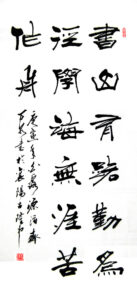 書山有路勤為
徑學海無涯苦
作舟
庚寅年